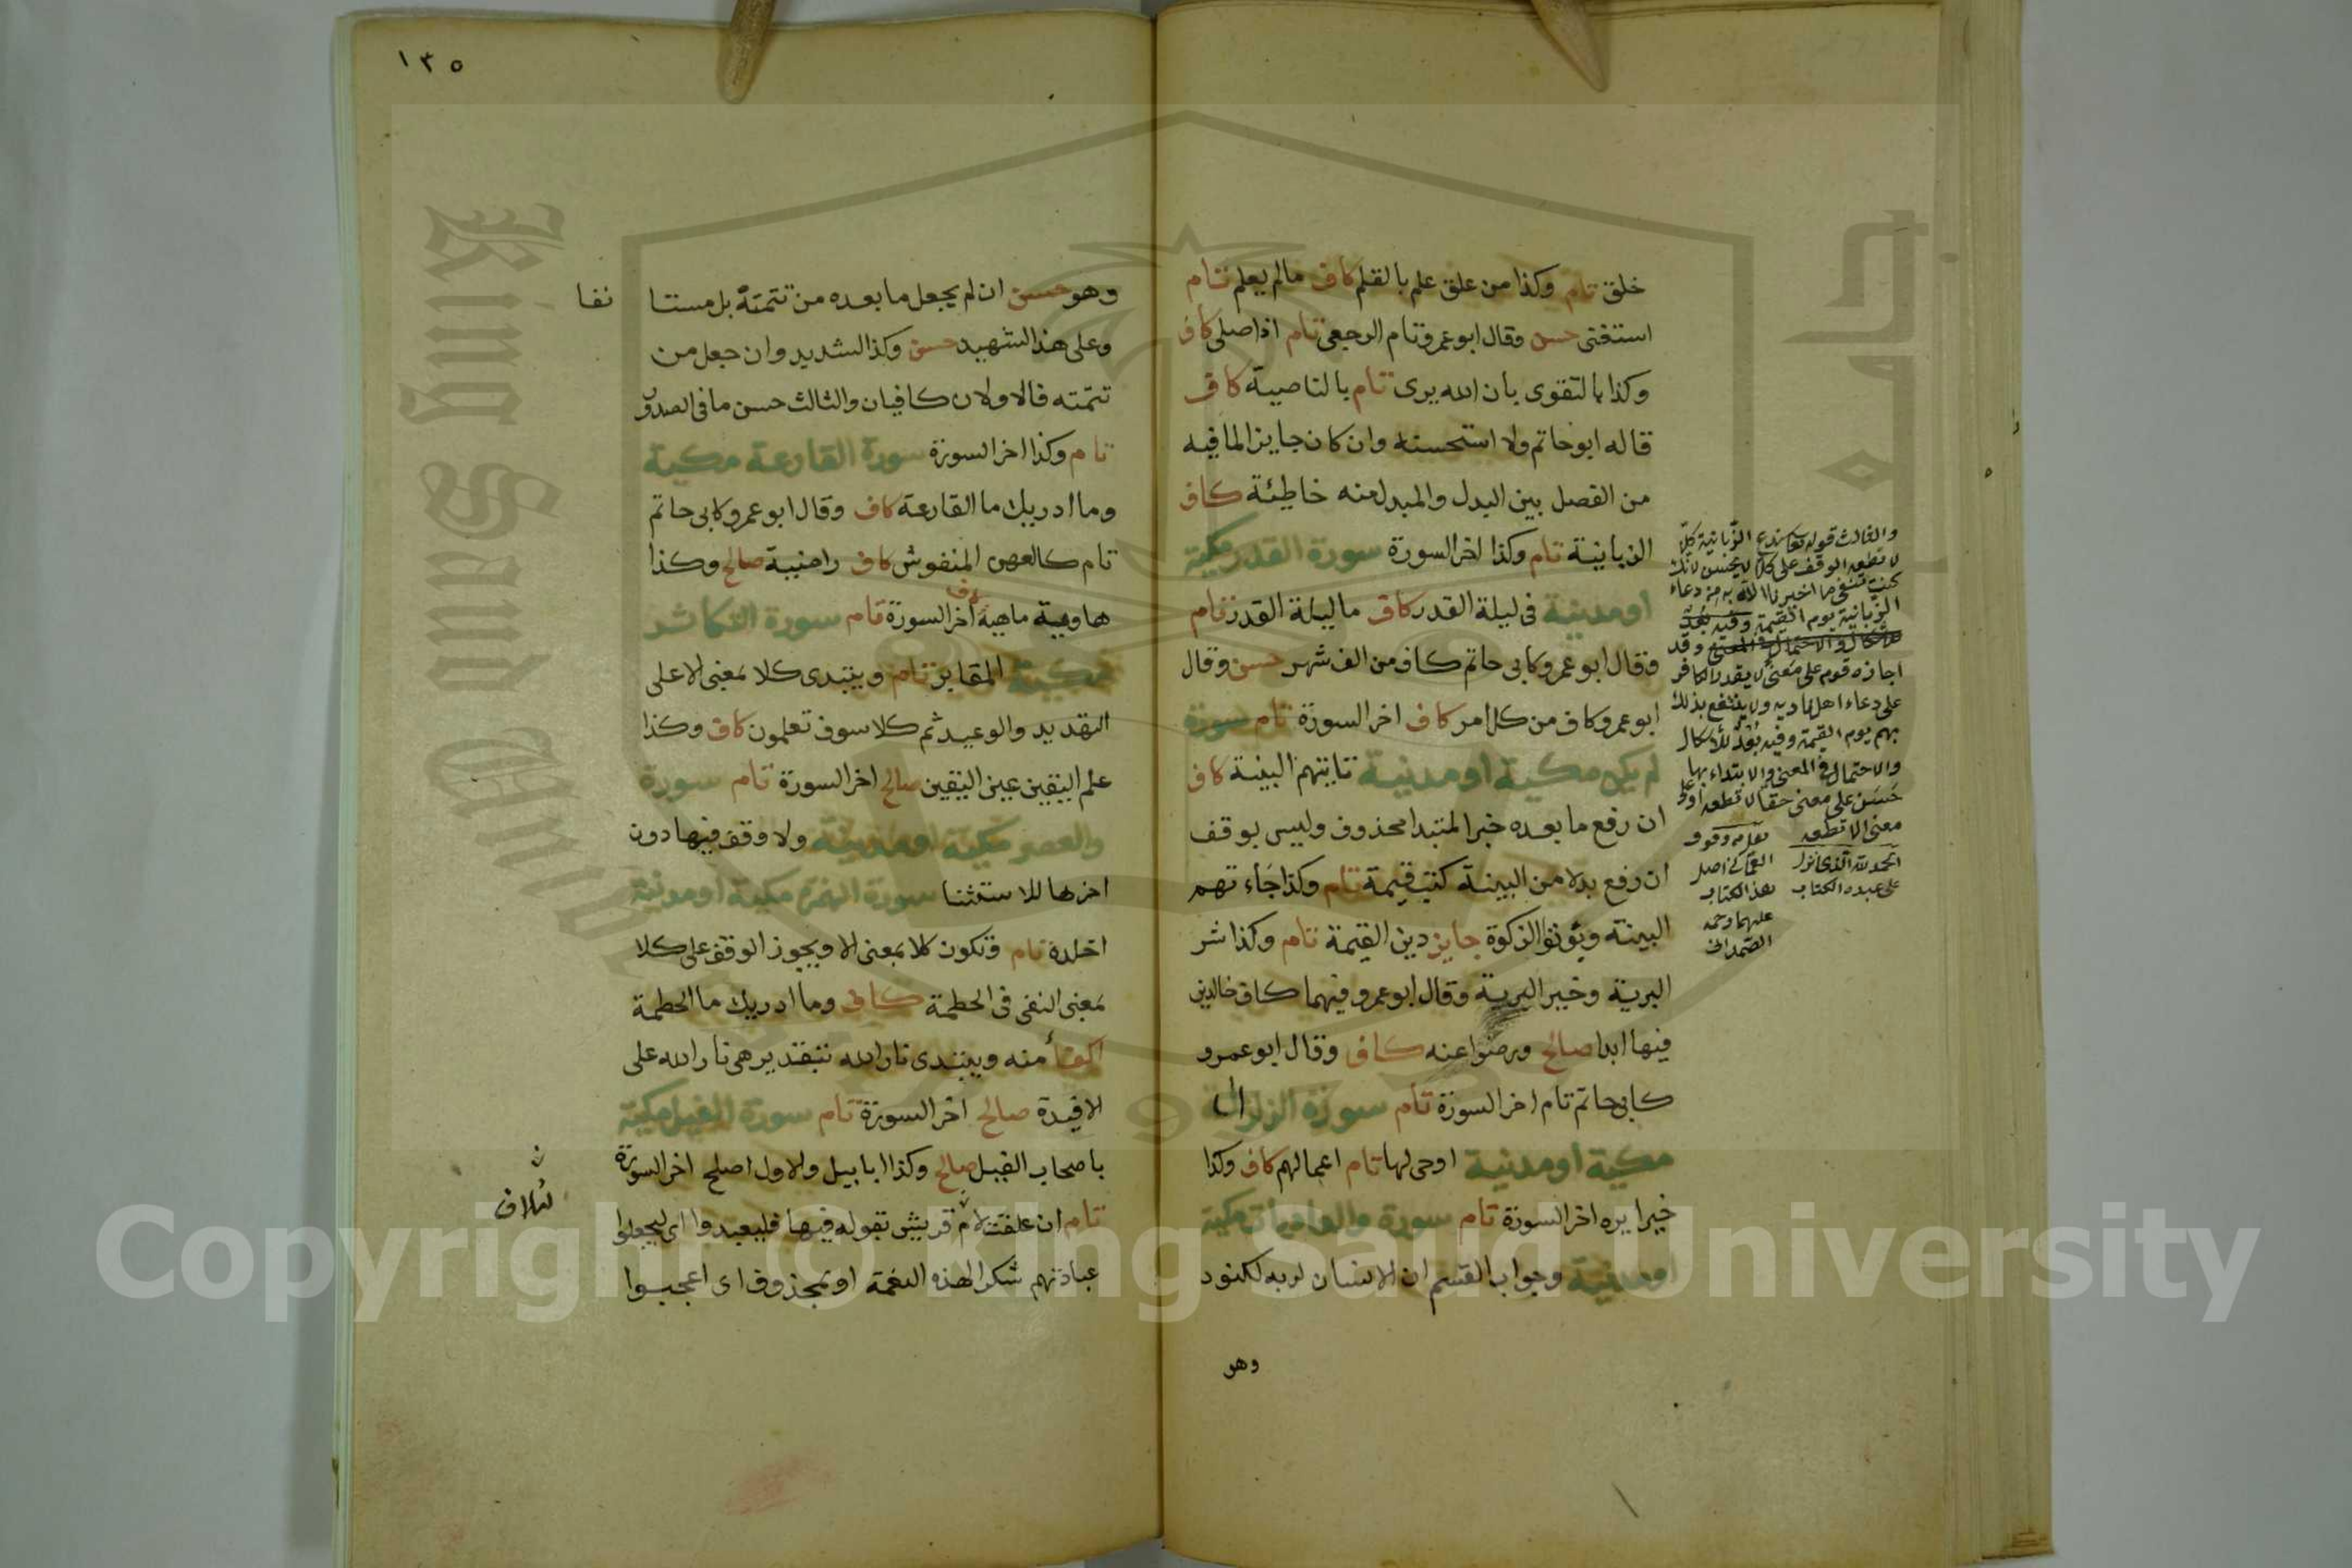 خلق تام وكذا من علق علم بالقلم كاف مالم يعلم تام
استغنى حسن وقال ابو عمرو تام الرجعى تام اذا صلى كاف
وكذا بالتقوى بان الله يرى تام بالناصية كاف
قاله ابو حاتم ولا استحسنه وان كان جايزا لما فيه
من الفصل بين البدل والمبدل منه خاطئة كاف
الزبانية تام وكذا اخر السورة سورة القدر مكية
او مدنية فى ليلة القدر كاف ما ليلة القدر تام
وقال ابو عمرو كابى حاتم كاف من الف شهر حسن وقال
ابو عمرو كاف من كل امر كاف اخر السورة تام سورة
لم يكن مكية او مدنية تاتيهم البينة كاف
ان رفع ما بعده خبر المبتدا محذوف وليس بوقف
ان رفع بدلا من البينة كتب قيمة تام وكذا جاءتهم
البينة ويؤتوا الزكوة جايز دين القيمة تام وكذا شر
البرية وخير البرية وقال ابو عمرو فيهما كاف خالدين
فيها ابدا صالح ورضوا عنه كاف وقال ابو عمرو
كابى حاتم تام اخر السورة تام سورة الزلزال
مكية او مدنية اوحى لها تام اعمالهم كاف وكذا
خيرا يره اخر السورة تام سورة والعاديات مكية
او مدنية وجواب القسم ان الانسان لربه لكنود
وهو
والثالث قوله تعا سندع الزبانية كلا
لا تطعه الوقف على كلا لا يحسن لانك
كنت تنفى ما اخبرنا الله به من دعاء
الزبانية يوم القيمة وفيه بعد
وقد
اجازه قوم على معنى لا يقدر الكافر
على دعاء اهل ناديه ولا ينتفع بذلك
بهم يوم القيمة وفيه بعد للاشكال
والاحتمال فى المعنى والابتداء بها
حسن على معنى حقا لا تطعه او على
معنى الا تطعه
الحمد لله الذى انزل
على عبده الكتاب
نقل من وقوف
العمانى اصل
هذا الكتاب
عليهما رحمة
١٣٥
وهو حسن ان لم يجعل ما بعده من تتمته بل مستا نفا
وعلى هذا لشهيد حسن وكذا لشديد وان جعل من
تتمته فالاولان كافيان والثالث حسن ما فى الصدور
تام وكذا اخر السورة سورة القارعة مكية
وما ادريك ما القارعة كاف وقال ابو عمرو كابى حاتم
تام كالعهن المنفوش كاف راضية صالح وكذا
هاوية ماهيه كاف اخر السورة تام سورة التكاثر
مكية المقابر تام ويبتدى كلا بمعنى الا على
التهديد والوعيد ثم كلا سوف تعلمون كاف وكذا
علم اليقين عين اليقين صالح اخر السورة تام سورة
والعصر مكية او مدنية ولا وقف فيها دون
اخرها للاستثنا سورة الهمزة مكية او مدنية
اخلده تام وتكون كلا بمعنى الا ويجوز الوقف على كلا
بمعنى النفى فى الحطمة كاف وما ادريك ما الحطمة
اكفأ منه ويبتدى نار الله بتقدير هى نار الله على
الافيدة صالح اخر السورة تام سورة الفيل مكية
باصحاب الفيل صالح وكذا ابابيل والاول اصلح اخر السورة
تام ان علقت لام قريش بقوله فيها فليعبدوا اى ليجعلوا
عبادتهم شكرا لهذه النعمة او بمحذوف اى اعجبوا
لئلاف
Copyright © King Saud University
King Saud University